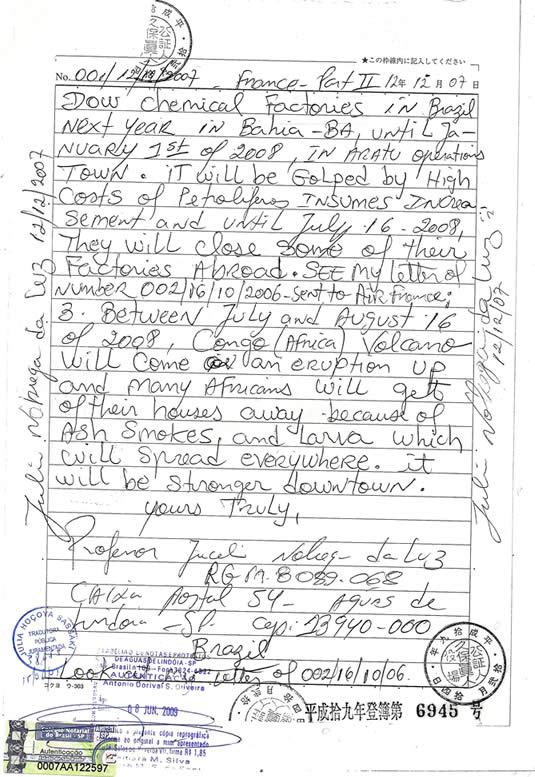 ★この枠線内に記入してください
No. 001/12/12/2007 - France - Part II 12年12月07日
Dow Chemical Factories in Brazil
Next year in Bahia-BA, until Ja-
nuarly 1st of 2008, in Aratu operations
Town. it will be Golped by High
Costs of Petroliferos Insumes Increa
sement and until July, 16-2008,
They will close some of their
Factories Abroad. SEE My letter of
Number 002/16/10/2006-sent to Air France;
3. Between July and August 16
of 2008, Congo (Africa) Volcano
will come an eruption up
and many Africans will gett
of their houses away because of
Ash Smokes, and Larva which
will spread everywhere. it
will be stronger downtown.
yours Truly,
Professor Juceli Nobrega da Luz
RG M.8 089.068
CAixa Postal 54 - Aguas de
Lindoia - SP. cep: 13940-000
Brazil
Look letter of 002/16/10/06.
12/12/2007
12/12/07
JULIA HOÇOYA SASSAKI
TRADUTORA
PÚBLICA
JURAMENTADA
DE AGUAS DE LINDÓIA - SP
AUTENTICAÇÃO
Antonio Dorival S. Oliveira
08 JUN. 2009
a presente cópia reprográfica
conforme o original a mim apresentado
R$ 1,85
M. Silva
コクヨ ウ-303
平成拾九年登簿第 6945 号
Colégio Notarial
do Brasil - SP
Autenticação
0007AA122597